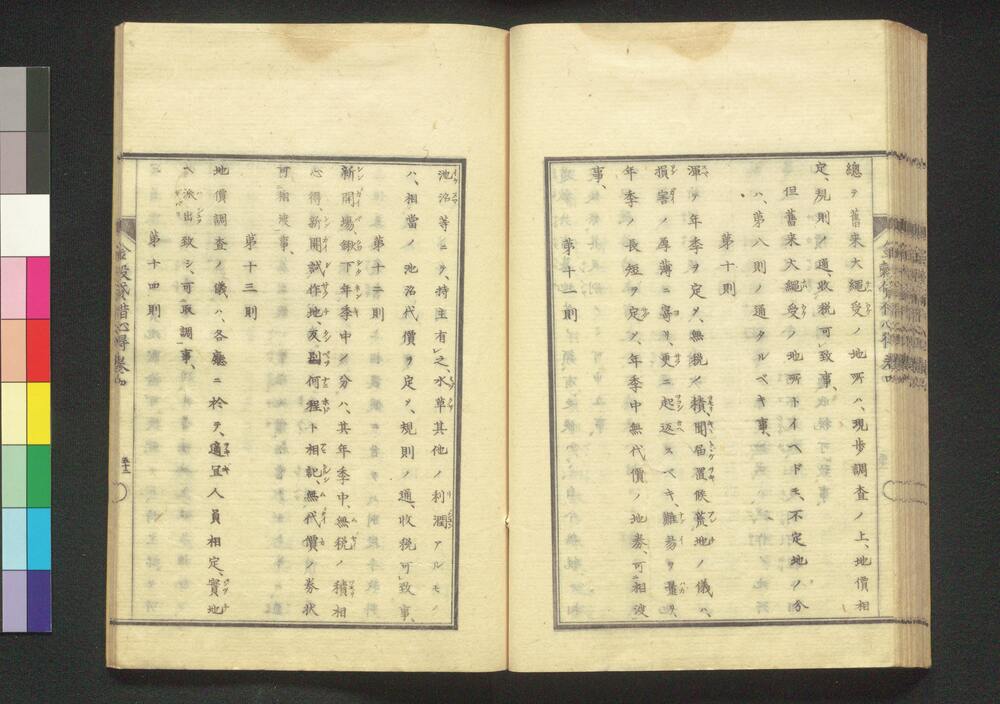 總テ舊來大繩受ノ地所ハ、現歩調査ノ上、地價相
定、規則ノ通、收税可致事、
但舊來大繩受ノ地所トイヘドモ、不定地ノ分
ハ、第八則ノ通タルベキ事、
第十則
渾テ年季ヲ定メ、無税ノ積、聞届置候荒地ノ儀ハ、
損害ノ厚薄ニ寄リ、更ニ起返スベキ、難易ヲ量リ、
年季ノ長短ヲ定メ、年季中無代價ノ地券、可相渡
事、
第十一則
池沼等ニテ、持主有之、水草其他ノ利潤アルモノ
ハ、相當ノ池沼代價ヲ定メ、規則ノ通、收税可致事、
第十二則
新開場、鍬下年季中ノ分ハ、其年季中、無税ノ積相
心得、新開試作地、反別何程ト相記、無代價ノ券状
可相渡事、
第十三則
地價調査ノ儀ハ、各廳ニ於テ、適宜人員相定、實地
ヘ派出致シ、可取調事、
第十四則
金穀貸借心得 卷四